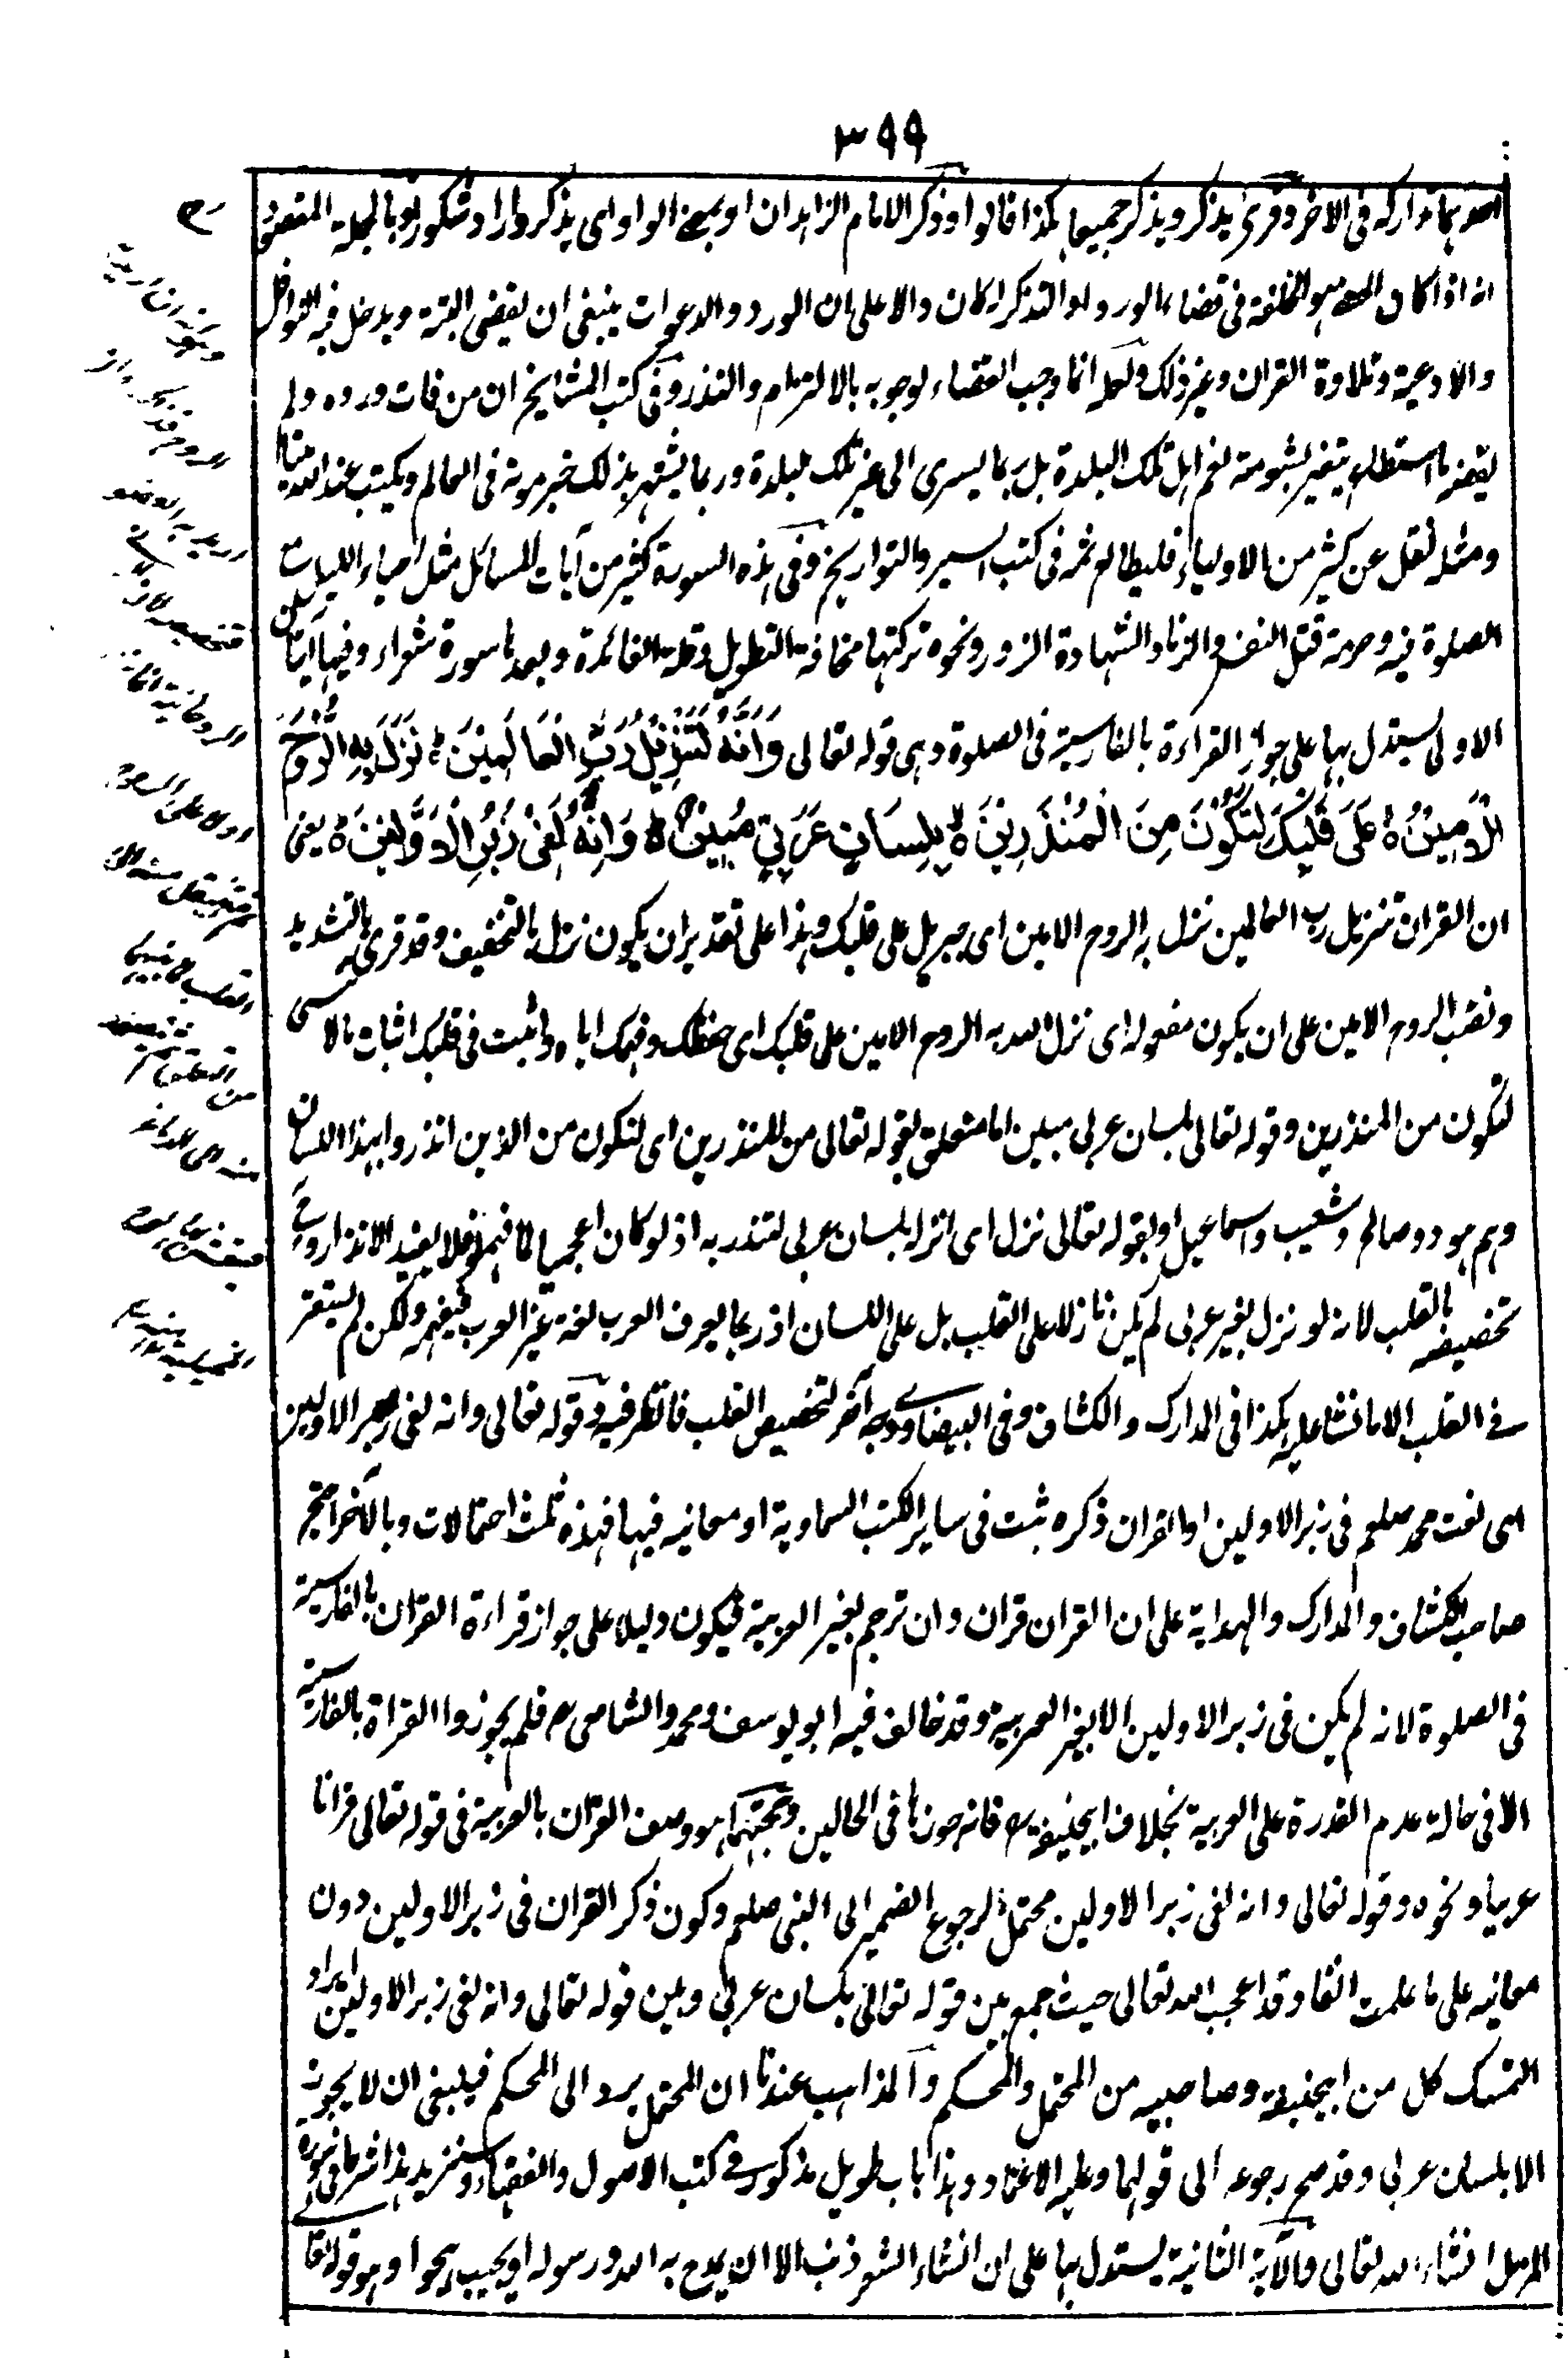 ٣٩٩
احدهما تداركه فى الاخر وقرئ يذكر ويذكر جميعا هكذا قالوا وذكر الامام الزاهد ان او بمعنى الواو اى يذكر واراد شكورا وبالجملة المقصود
انه اذا كان المعنى هو الخلفة فى قضاء الورد والتذكر كان دالا على ان الورد والدعوات ينبغى ان يقضى البتة ويدخل فيه النوافل
والادعية وتلاوة القران وغير ذلك ولعله انما وجب القضاء لوجوبه بالالتزام والنذر وفى كتب المشايخ ان من فات ورده ولم
يقضه ما استطاع يتغير بشومته نعم اهل تلك البلدة بل ربما يسرى الى غير تلك البلدة وربما يشتهر بذلك خبر موته فى العالم ويكتب عند الله ميتا
ومثله نقل عن كثير من الاولياء فليطالع ثمه فى كتب السير والتواريخ وفى هذه السورة كثير من آيات المسائل مثل احياء الليل
الصلوة فيه وحرمة قتل النفس والزنا والشهادة الزور ونحوه تركتها مخافة التطويل وقلة الفائدة وبعدها سورة شعراء وفيها آيتان
الاولى يستدل بها على جواز القراءة بالفارسية فى الصلوة وهى قوله تعالى وَاِنَّهُ لَتَنْزِيْلُ رَبِّ الْعَالَمِيْنَ ۝ نَزَلَ بِهِ الرُّوْحُ
الْاَمِيْنُ ۝ عَلَى قَلْبِكَ لِتَكُوْنَ مِنَ الْمُنْذِرِيْنَ ۝ بِلِسَانٍ عَرَبِيٍّ مُبِيْنٍ ۝ وَاِنَّهُ لَفِيْ زُبُرِ الْاَوَّلِيْنَ ۝ يعنى
ان القران تنزيل رب العالمين نزل به الروح الامين اى جبريل على قلبك وهذا على تقدير ان يكون نزل بالتخفيف وقد قرئ بالتشديد
ونصب الروح الامين على ان يكون مفعوله اى نزل الله به الروح الامين على قلبك اى حفظك وفهمك اياه واثبت فى قلبك اثبات ما لا ينسى
لتكون من المنذرين وقوله تعالى بلسان عربى مبين اما متعلق بقوله تعالى من المنذرين اى لتكون من الذين انذروا بهذا اللسان
وهم هود وصالح وشعيب واسماعيل او بقوله تعالى نزل اى انزله بلسان عربى لتنذر به اذ لو كان اعجميا لا فهموه فلا يفيد الانذار وفى
تخصيصه بالقلب لانه لو نزل بغير عربى لم يكن نازلا على القلب بل على اللسان اذ ربما يعرف العرب لغة غير العرب فيفهم ولكن لم يستقر
فى القلب الا ما نشا عليه هكذا فى المدارك والكشاف وفى البيضاوى وجه آخر لتخصيص القلب فانظر فيه وقوله تعالى وانه لفى زبر الاولين
اى نعت محمد صلعم فى زبر الاولين او القران ذكره ثبت فى ساير الكتب السماوية او معانيه فيها فهذه ثلث احتمالات وبالآخر احتج
صاحب الكشاف والمدارك والهداية على ان القران قران وان ترجم بغير العربية فيكون دليلا على جواز قراءة القران بالفارسية
فى الصلوة لانه لم يكن فى زبر الاولين الا بغير العربية وقد خالف فيه ابو يوسف ومحمد والشافعى رح فلم يجوزوا القراة بالفارسية
الا فى حالة عدم القدرة على العربية بخلاف ابيحنيفة رح فانه جوزها فى الحالين وحجتهما هو وصف القران بالعربية فى قوله تعالى قرانا
عربيا ونحوه وقوله تعالى وانه لفى زبر الاولين محتمل لرجوع الضمير الى النبى صلعم وكون ذكر القران فى زبر الاولين دون
معانيه على ما علمت انفا وقد اعجب الله تعالى حيث جمع بين قوله تعالى بلسان عربى وبين قوله تعالى وانه لفى زبر الاولين ايراد
التمسك كل من ابيحنيفة وصاحبيه من المحتمل والمحكم والمذاهب عندنا ان المحتمل يرد الى المحكم فينبغى ان لا يجوز
الا بلسان عربى وقد صح رجوعه الى قولهما وعليه الاعتماد وهذا باب طويل مذكور فى كتب الاصول والفقهاء وسنزيد هذا شرحا فى سورة
المزمل انشاء الله تعالى والآية الثانية يستدل بها على ان انشاء الشعر ذنب الا ان يمدح به الله ورسوله او يجيب هجوا وهو قوله تعا